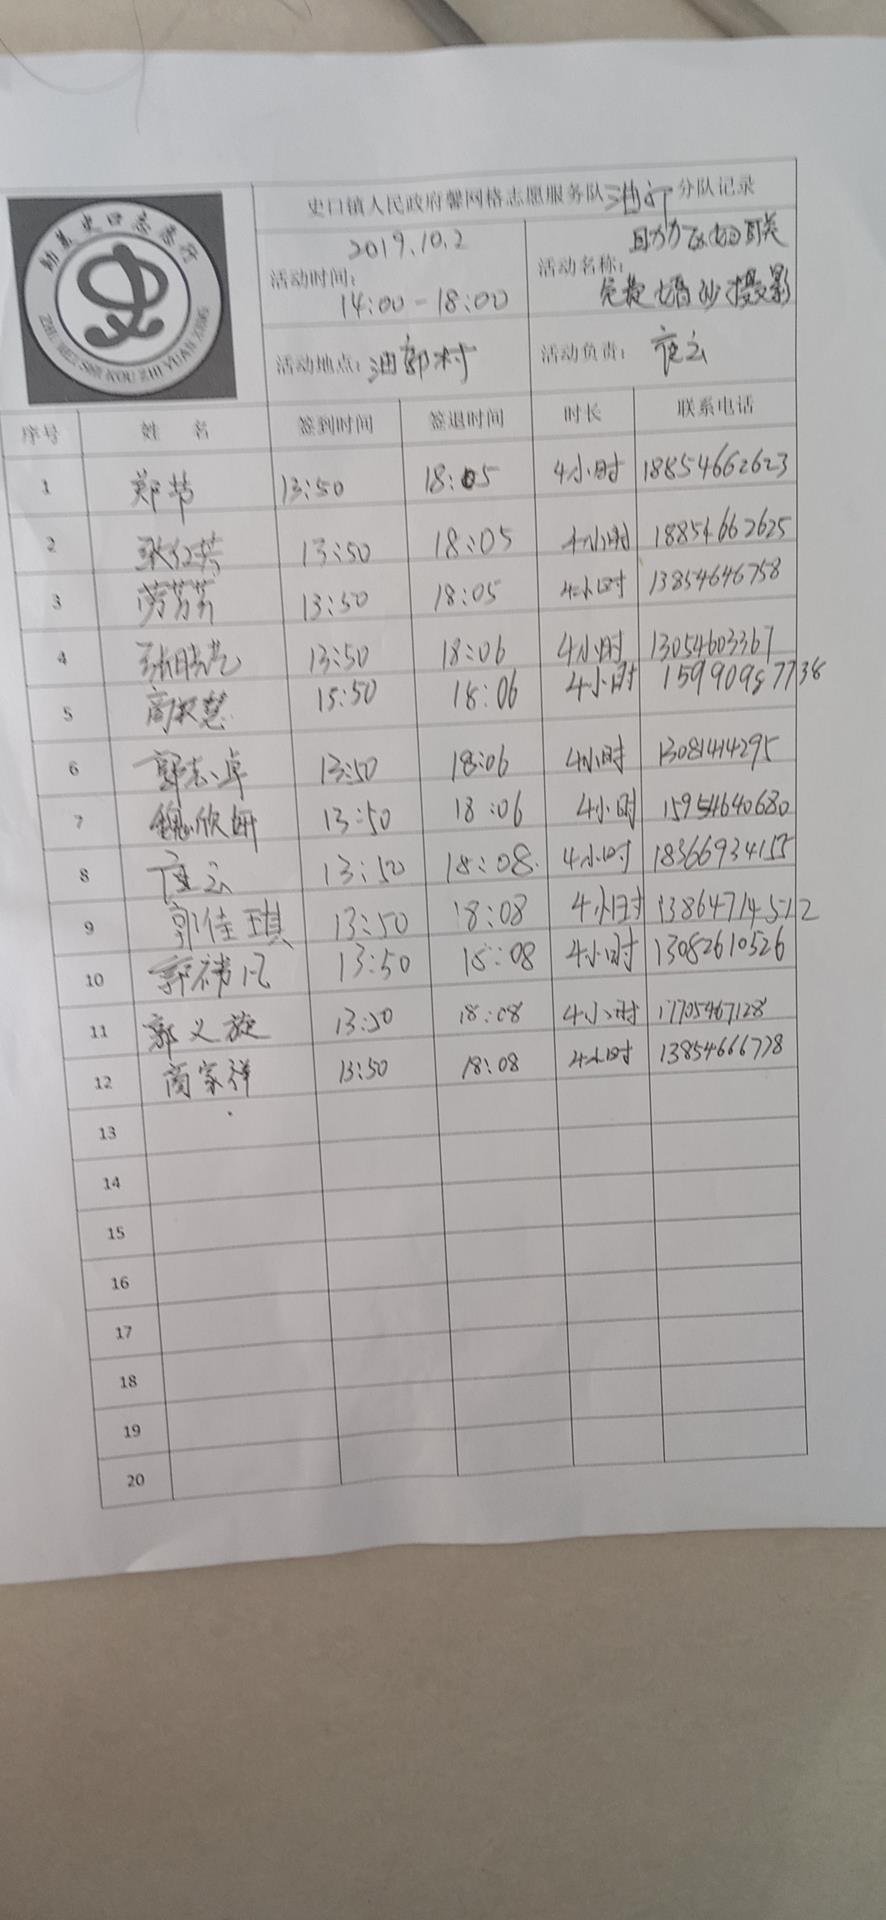 史口镇人民政府馨网格志愿服务队油郭分队记录
助美史口志愿行
ZHU MEI SHI KOU ZHI YUAN XING
2019.10.2
活动时间:
14:00-18:00
助力妇联
活动名称:
免费婚纱摄影
活动地点: 油郭村
活动负责:
序号 姓 名 签到时间 签退时间 时长 联系电话
1 郑节 13:50 18:05 4小时 18854662623
2 张红芳 13:50 18:05 4小时 18854662625
3 芳芳 13:50 18:05 4小时 13854646758
4 张晓 13:50 18:06 4小时 13054603367
5 商 慧 15:50 18:06 4小时 15990987738
6 郭志卓 13:50 18:06 4小时 13081414295
7 魏欣妍 13:50 18:06 4小时 15954640680
8 13:50 18:08 4小时 18366934155
9 郭佳琪 13:50 18:08 4小时 13864714512
10 郭 13:50 18:08 4小时 13082610526
11 郭义旋 13:50 18:08 4小时 17705467128
12 商家祥 13:50 18:08 4小时 13854666778
13
14
15
16
17
18
19
20